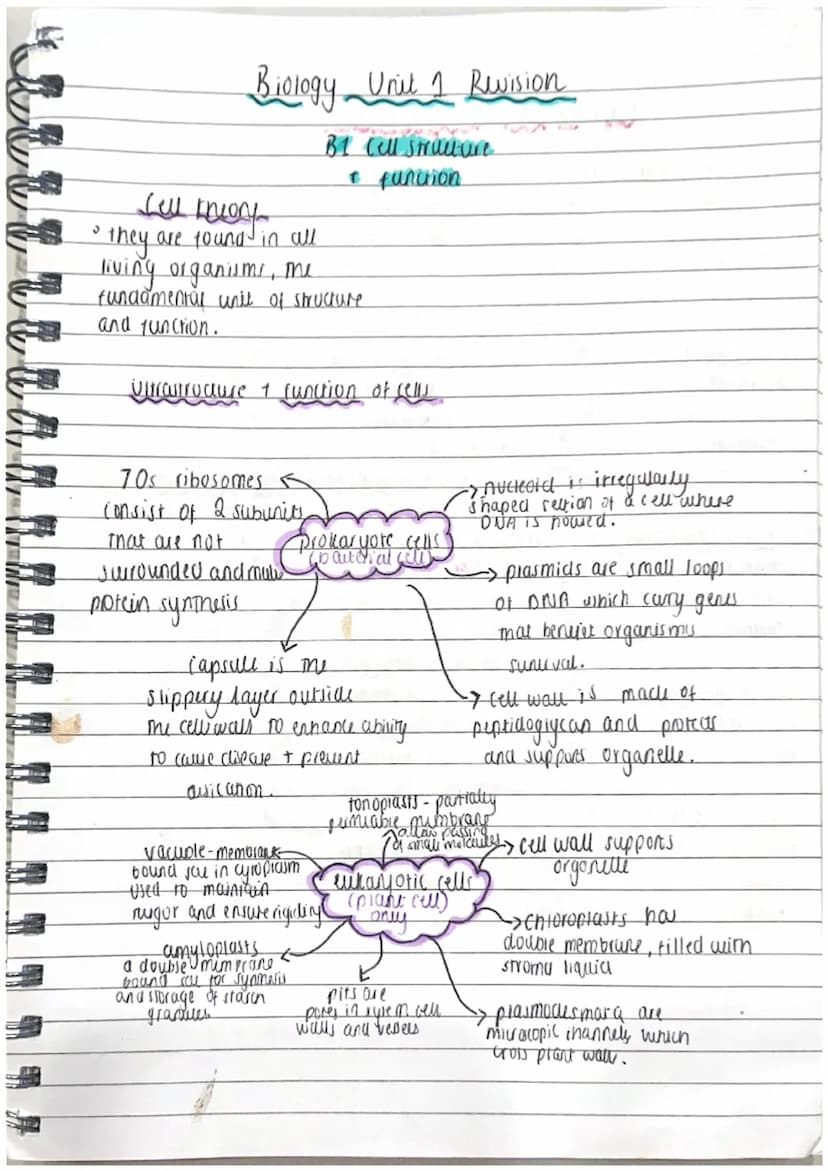 Biology Unit 1 Revision
B1 Cell structure
+ function
Cell theory
° they are found in all
living organisms, the
fundamental unit of structure
and function.
Ultrastructure + function of cells
70s ribosomes
consist of 2 subunits
that are not
surrounded and make
protein synthesis
prokaryote cells
(bacterial cell)
nucleoid is irregularly
shaped section of a cell where
DNA is housed.
plasmids are small loops
of DNA which carry genes
that benefit organisms
survival.
capsule is the
slippery layer outside
the cell walls to enhance ability
to cause disease + prevent
cell wall is made of
peptidoglycan and protects
and supports organelle.
tonoplasts - partially
permiable membrane
allow passing
of small molecules
vacuole - membrane
bound sac in cytoplasm
used to maintain
turgor and ensure rigidity
eukaryotic cells
(plant cell)
only
cell wall supports
organelle
chloroplasts has
double membrane, filled with
stroma liquid
amyloplasts
a double membrane
bound sac for synthesis
and storage of starch
granules
pits are
pores in xylem cell
walls and vessels
plasmodesmata are
microscopic channels which
cross plant wall.